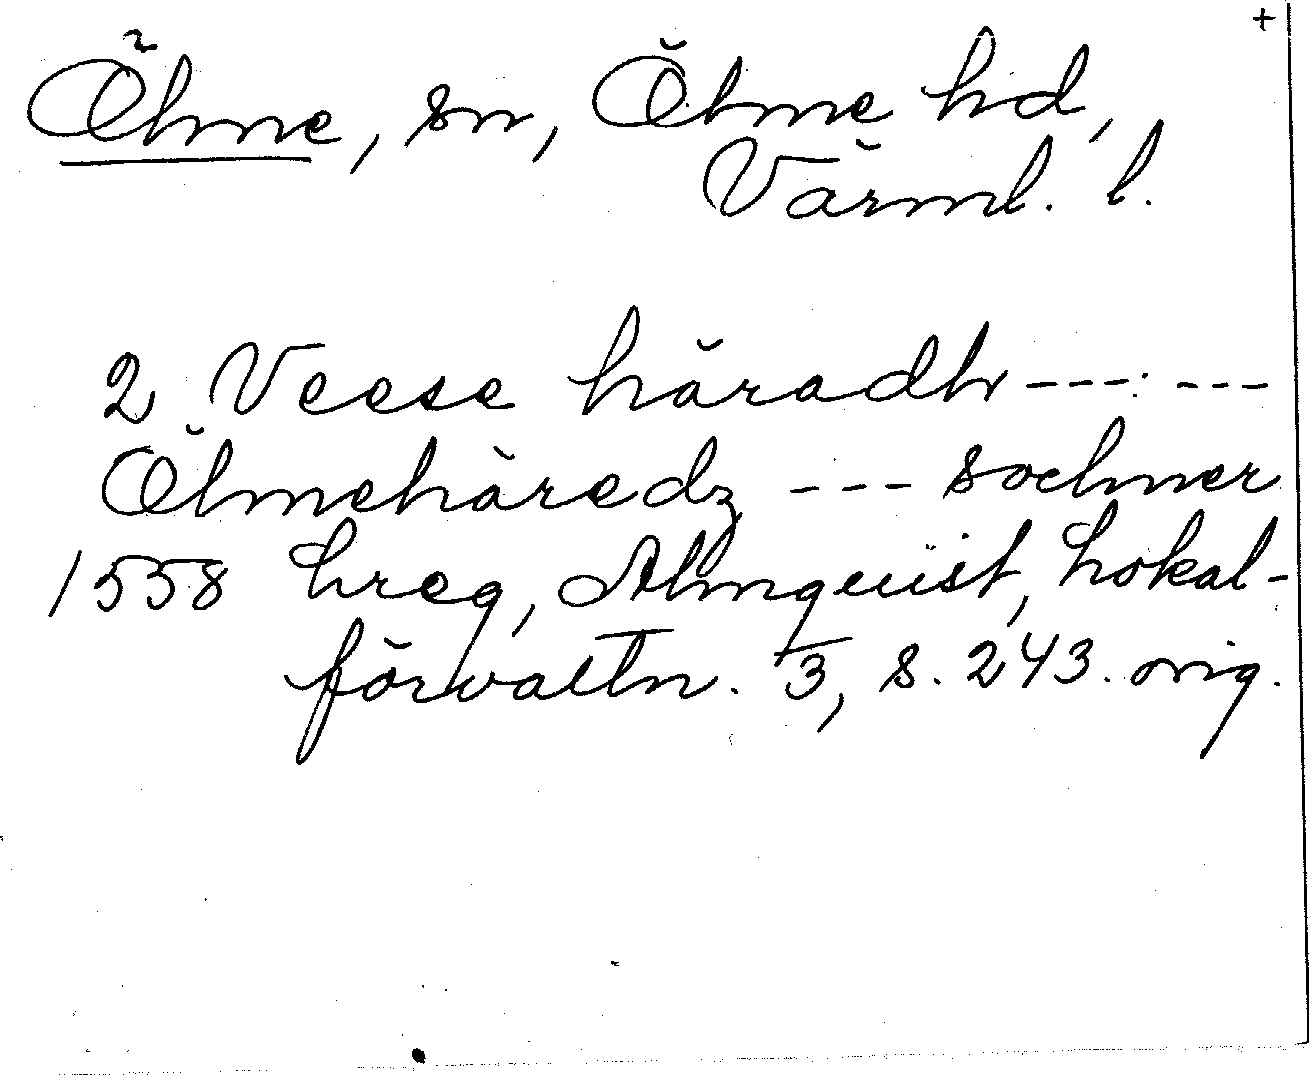 +
Ölme, sn, Ölme hd,
Värml. l.
2 Veese häradh ---:---
Ölmeheredz --- sochner
1558 hreg, Almquist, Lokal-
förvaltn. 3, s. 243. orig.